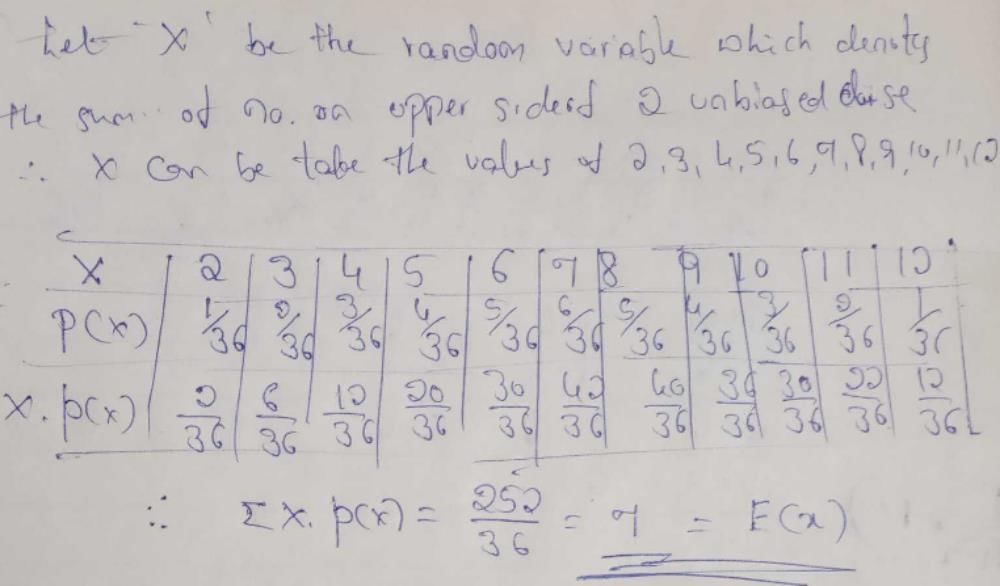 Let "X" be the random variable which denoty
the sum of no. on upper side of 2 unbiased
∴ X can be take the values of 2, 3, 4, 5, 6, 7, 8, 9, 10, 11, 12
X | 2 | 3 | 4 | 5 | 6 | 7 | 8 | 9 | 10 | 11 | 12
P(x) | 1/36 | 2/36 | 3/36 | 4/36 | 5/36 | 6/36 | 5/36 | 4/36 | 3/36 | 2/36 | 1/36
X. p(x) | 2/36 | 6/36 | 12/36 | 20/36 | 30/36 | 42/36 | 40/36 | 36/36 | 30/36 | 22/36 | 12/36
∴ Σ X. p(x) = 252/36 = 7 = E(x)